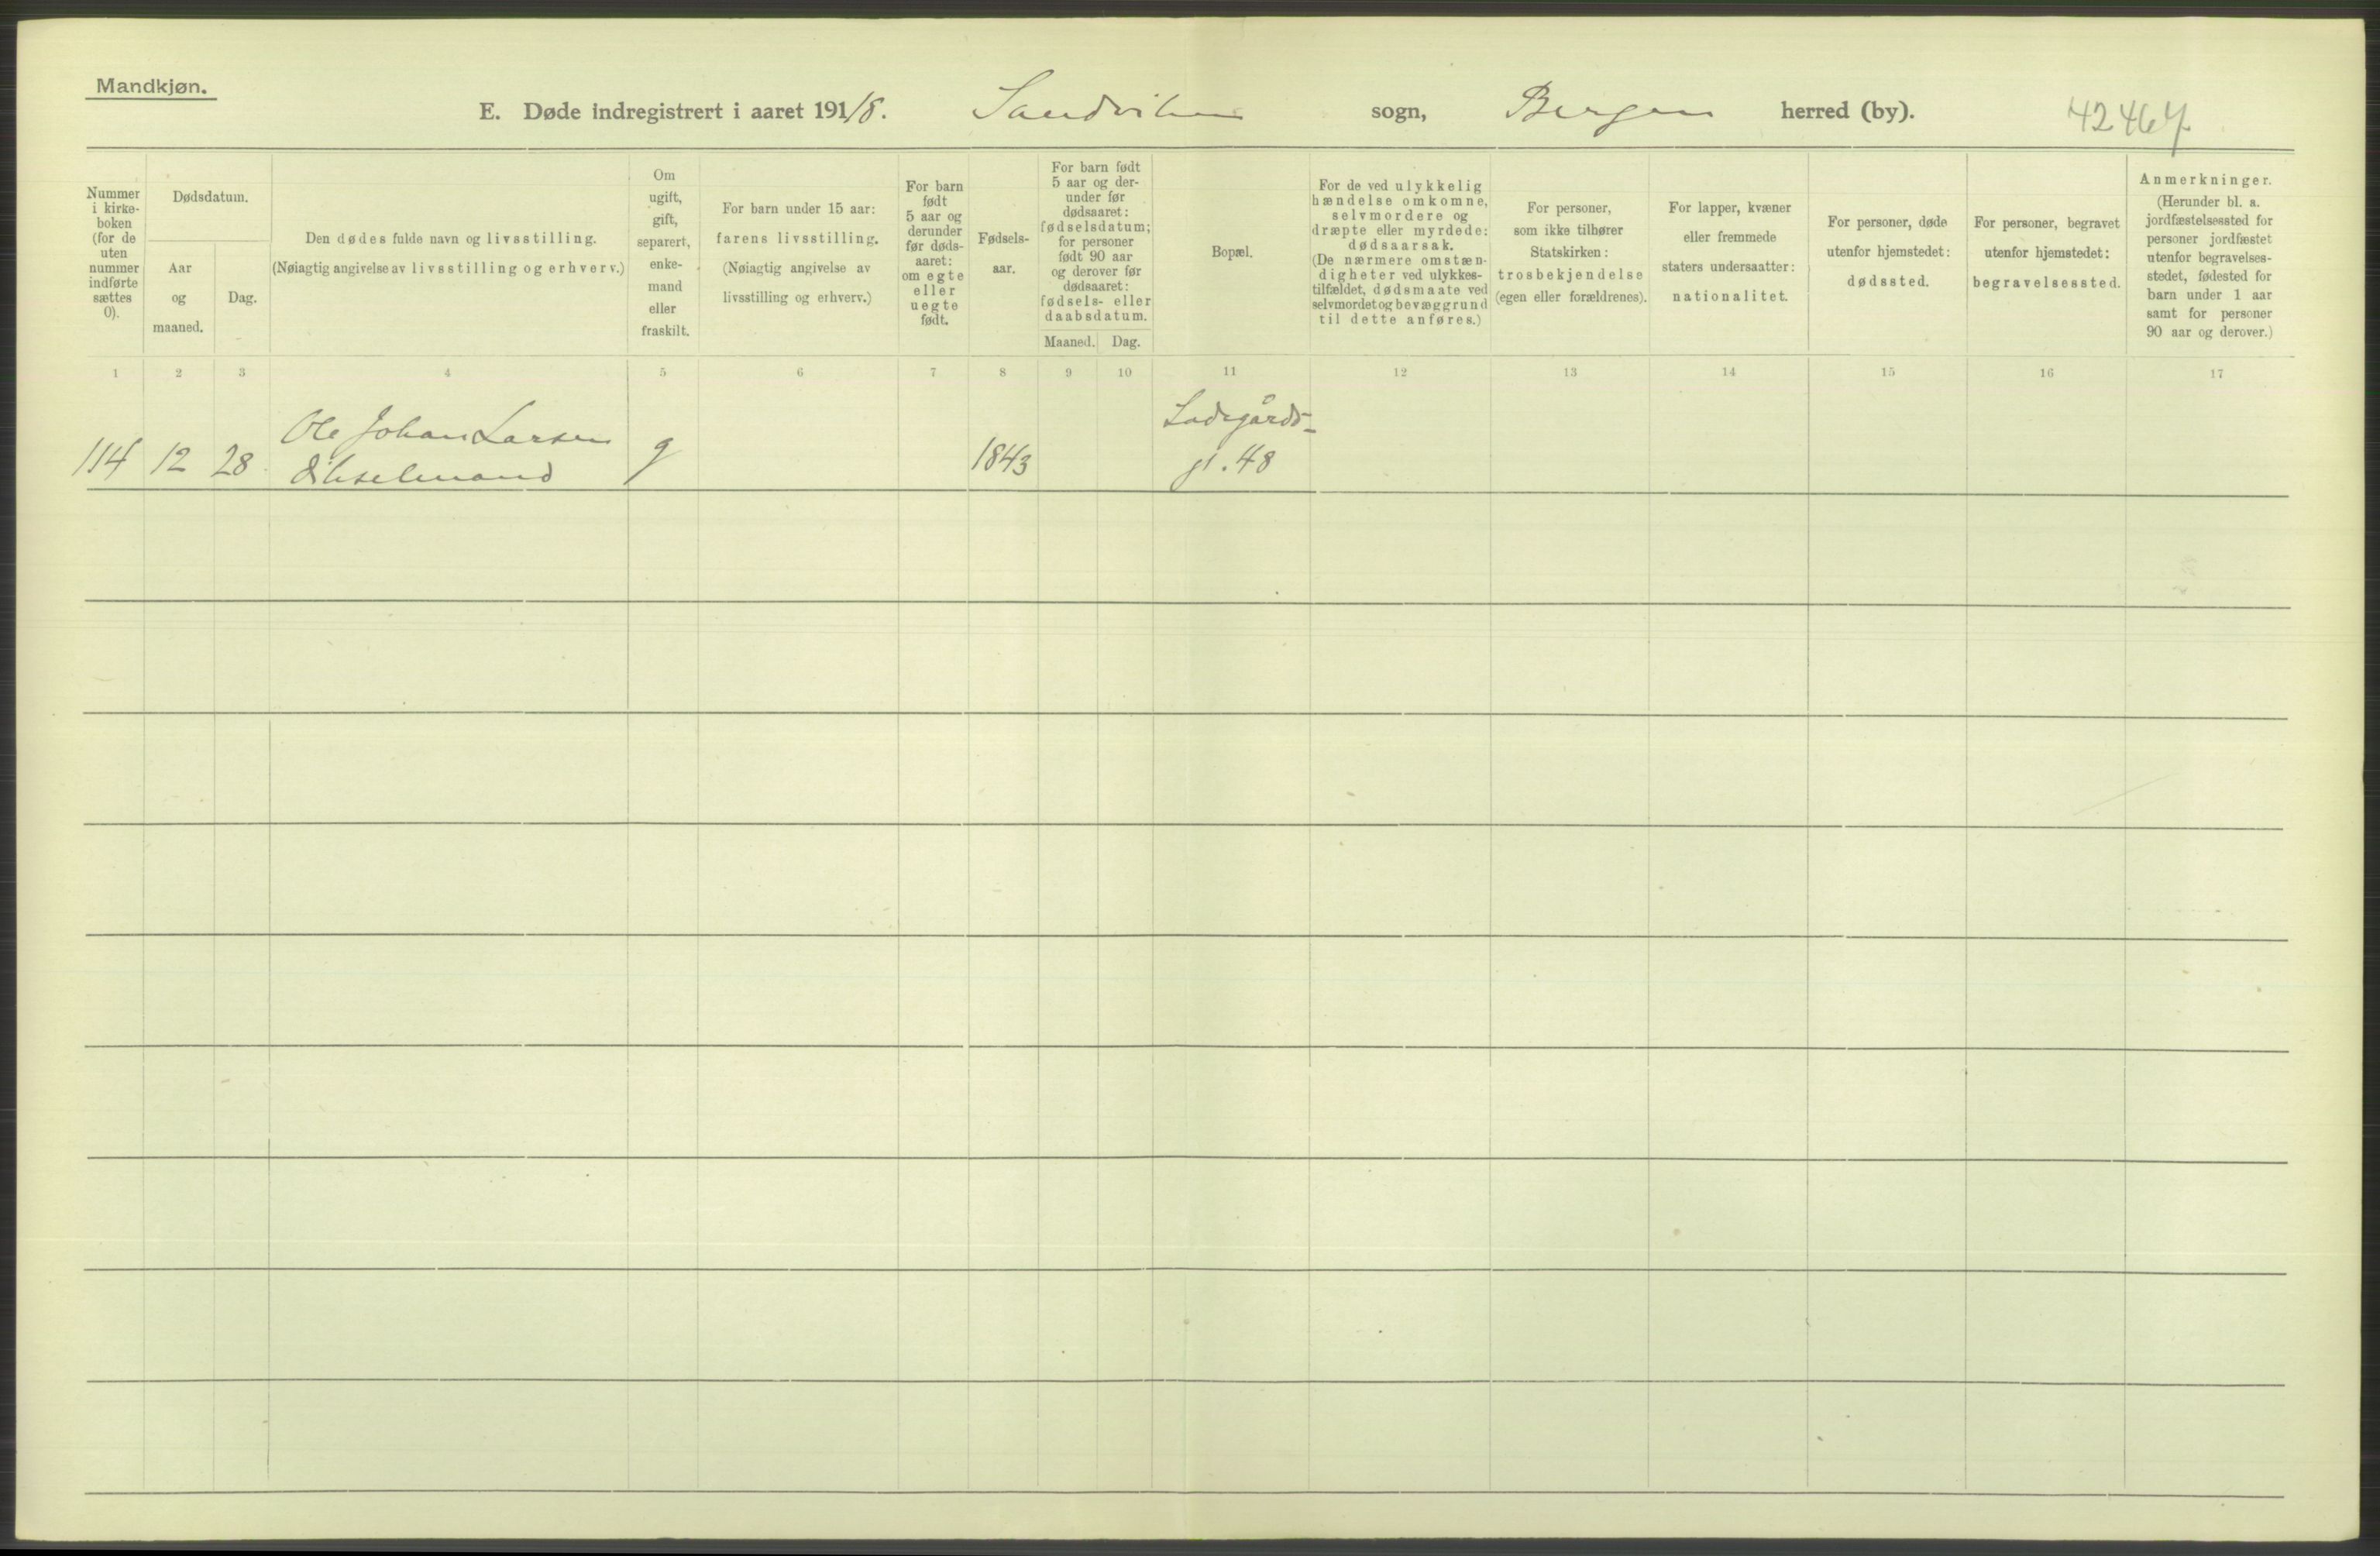 Mandkjøn.
E. Døde indregistrert i aaret 1918. Sandviken sogn, Bergen herred (by). 42467
Nummer
i kirke-
boken
(for de
uten
nummer
indførte
sættes
0).
Dødsdatum.
Aar
og
maaned.
Dag.
Den dødes fulde navn og livsstilling.
(Nøiagtig angivelse av livsstilling og erhverv.)
Om
ugift,
gift,
separert,
enke-
mand
eller
fraskilt.
For barn under 15 aar:
farens livsstilling.
(Nøiagtig angivelse av
livsstilling og erhverv.)
For barn
født
5 aar og
derunder
før døds-
aaret:
om egte
eller
uegte
født.
Fødsels-
aar.
For barn født
5 aar og der-
under før
dødsaaret:
fødselsdatum;
for personer
født 90 aar
og derover før
dødsaaret:
fødsels- eller
daabsdatum.
Maaned. Dag.
Bopæl.
For de ved ulykkelig
hændelse omkomne,
selvmordere og
dræpte eller myrdede:
dødsaarsak.
(De nærmere omstæn-
digheter ved ulykkes-
tilfældet, dødsmaate ved
selvmordet og bevæggrund
til dette anføres.)
For personer,
som ikke tilhører
Statskirken:
trosbekjendelse
(egen eller forældrenes).
For lapper, kvæner
eller fremmede
staters undersaatter:
nationalitet.
For personer, døde
utenfor hjemstedet:
dødssted.
For personer, begravet
utenfor hjemstedet:
begravelsessted.
Anmerkninger.
(Herunder bl. a.
jordfæstelsessted for
personer jordfæstet
utenfor begravelses-
stedet, fødested for
barn under 1 aar
samt for personer
90 aar og derover.)
1 2 3 4 5 6 7 8 9 10 11 12 13 14 15 16 17
Ole Johan Larsen Ladegårds-
114 12 28 g 1843 gt. 48